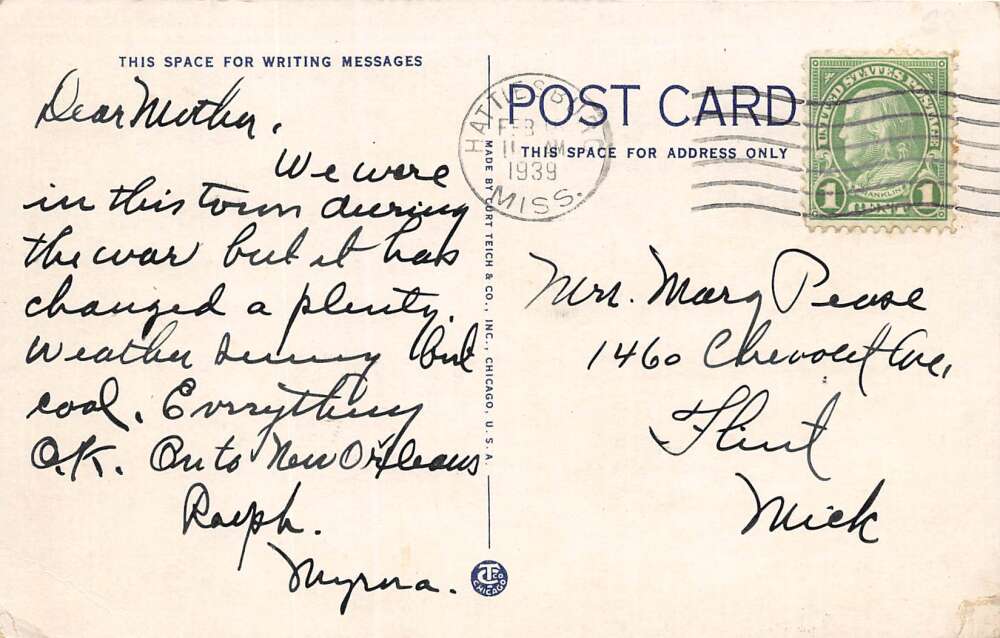 THIS SPACE FOR WRITING MESSAGES
Dear Mother,
We were
in this town during
the war but it has
changed a plenty.
Weather sunny but
cool. Everything
O.K. On to New Orleans
Ralph.
Myrna.
MADE BY CURT TEICH & CO., INC., CHICAGO, U.S.A.
CT CO
CHICAGO
POST CARD
THIS SPACE FOR ADDRESS ONLY
HATTIESBURG
FEB
11 AM
1939
MISS.
UNITED STATES POSTAGE
FRANKLIN
1 CENT 1
Mrs. Mary Pease
1460 Chevrolet Ave,
Flint
Mich